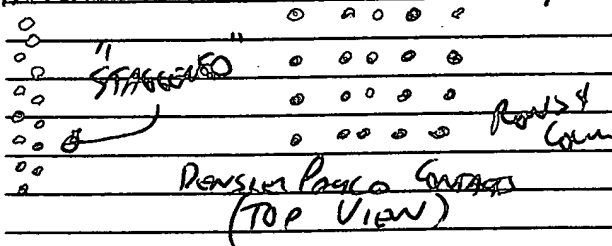 "STAGGERED"
ROWS &
COLUM
DENSELY PACKED CONTACTS
(TOP VIEW)